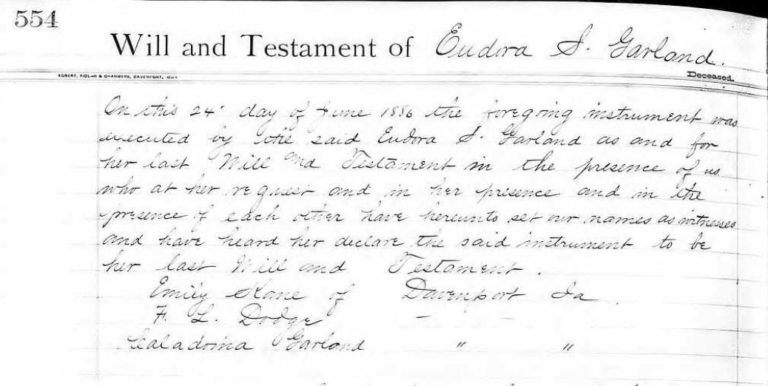 554
Will and Testament of Eudora S. Garland.
EGBERT, FIDLAR & CHAMBERS, DAVENPORT, IOWA
Deceased.
On this 24" day of June 1886 the foregoing instrument was
executed by the said Eudora S. Garland as and for
her last Will and Testament in the presence of us
who at her request and in her presence and in the
presence of each other have hereunto set our names as witnesses
and have heard her declare the said instrument to be
her last Will and Testament.
Emily Kane of Davenport Ia
F. L. Dodge — —
Caladonia Garland " "